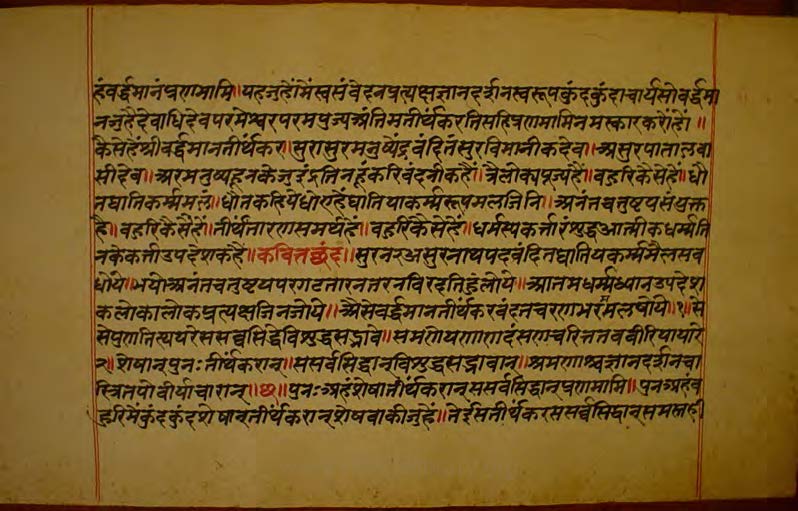 हंवर्द्धमानंप्रणमामि॥यहजुहौंमैंस्वसंवेदनप्रत्यक्षज्ञानदर्शनस्वरूपकुंदकुंदाचार्यसोवर्द्धमा
नजुहैदेवाधिदेवपरमेश्वरपरमपूज्यअंतिमतीर्थकरतिसहिप्रणमामिनमस्कारकरौंहौं॥
कैसेहैंश्रीवर्द्धमानतीर्थकर॥सुरासुरमनुष्येंद्रवंदितंसुरविमानीकदेव॥असुरपातालवा
सीदेव॥अरमनुष्यइनकेजुइंद्रतिनहूंकरिवंदनीकहैं॥त्रैलोक्यपूज्यहैं॥बहुरिकैसेहैं॥धौ
तघातिकर्म्ममलं॥धौतकहियेधोएहैंघातियाकर्म्मरूपमलजिनि॥अनंतचतुष्टयसंयुक्त
है॥बहुरिकैसेंहैं॥तीर्थंतारणसमर्थहैं॥बहुरिकैसेहैं॥धर्मस्यकर्त्तारंशुद्धआत्मीकधर्म्मति
नकेकर्त्ताउपदेशकहैं॥कवित्तछंद॥सुरनरअसुरनाथपदवंदितघातियकर्म्ममैलसब
धोये॥भयोअनंतचतुष्टयपरगटतारनतरनविरदतिहुंलोये॥आतमधर्म्मध्यानउपदेश
कलोकालोकप्रत्यक्षजिनजोये॥अैसेवर्द्धमानतीर्थकरवंदतचरणभरममलषोये॥१॥से
सेपुणतित्थयरेससव्वसिद्धेविशुद्धसद्भावे॥समणेयणाणदंसणचरित्ततववीरियायारे
२॥शेषान्पुनःतीर्थकरान्॥ससर्वसिद्धान्विशुद्धसद्भावान्॥श्रमणाश्चज्ञानदर्शनचा
रित्रतपोवीर्याचारान्॥छ॥पुनःअहंशेषातीर्थकरान्ससर्वसिद्धान्प्रणमामि॥पुनःअहंब
हुरिमेंकुंदकुंदशेषान्तीर्थकरान्शेषबाकीजुहैं॥तेईसतीर्थकरससर्वसिद्धान्समस्तही